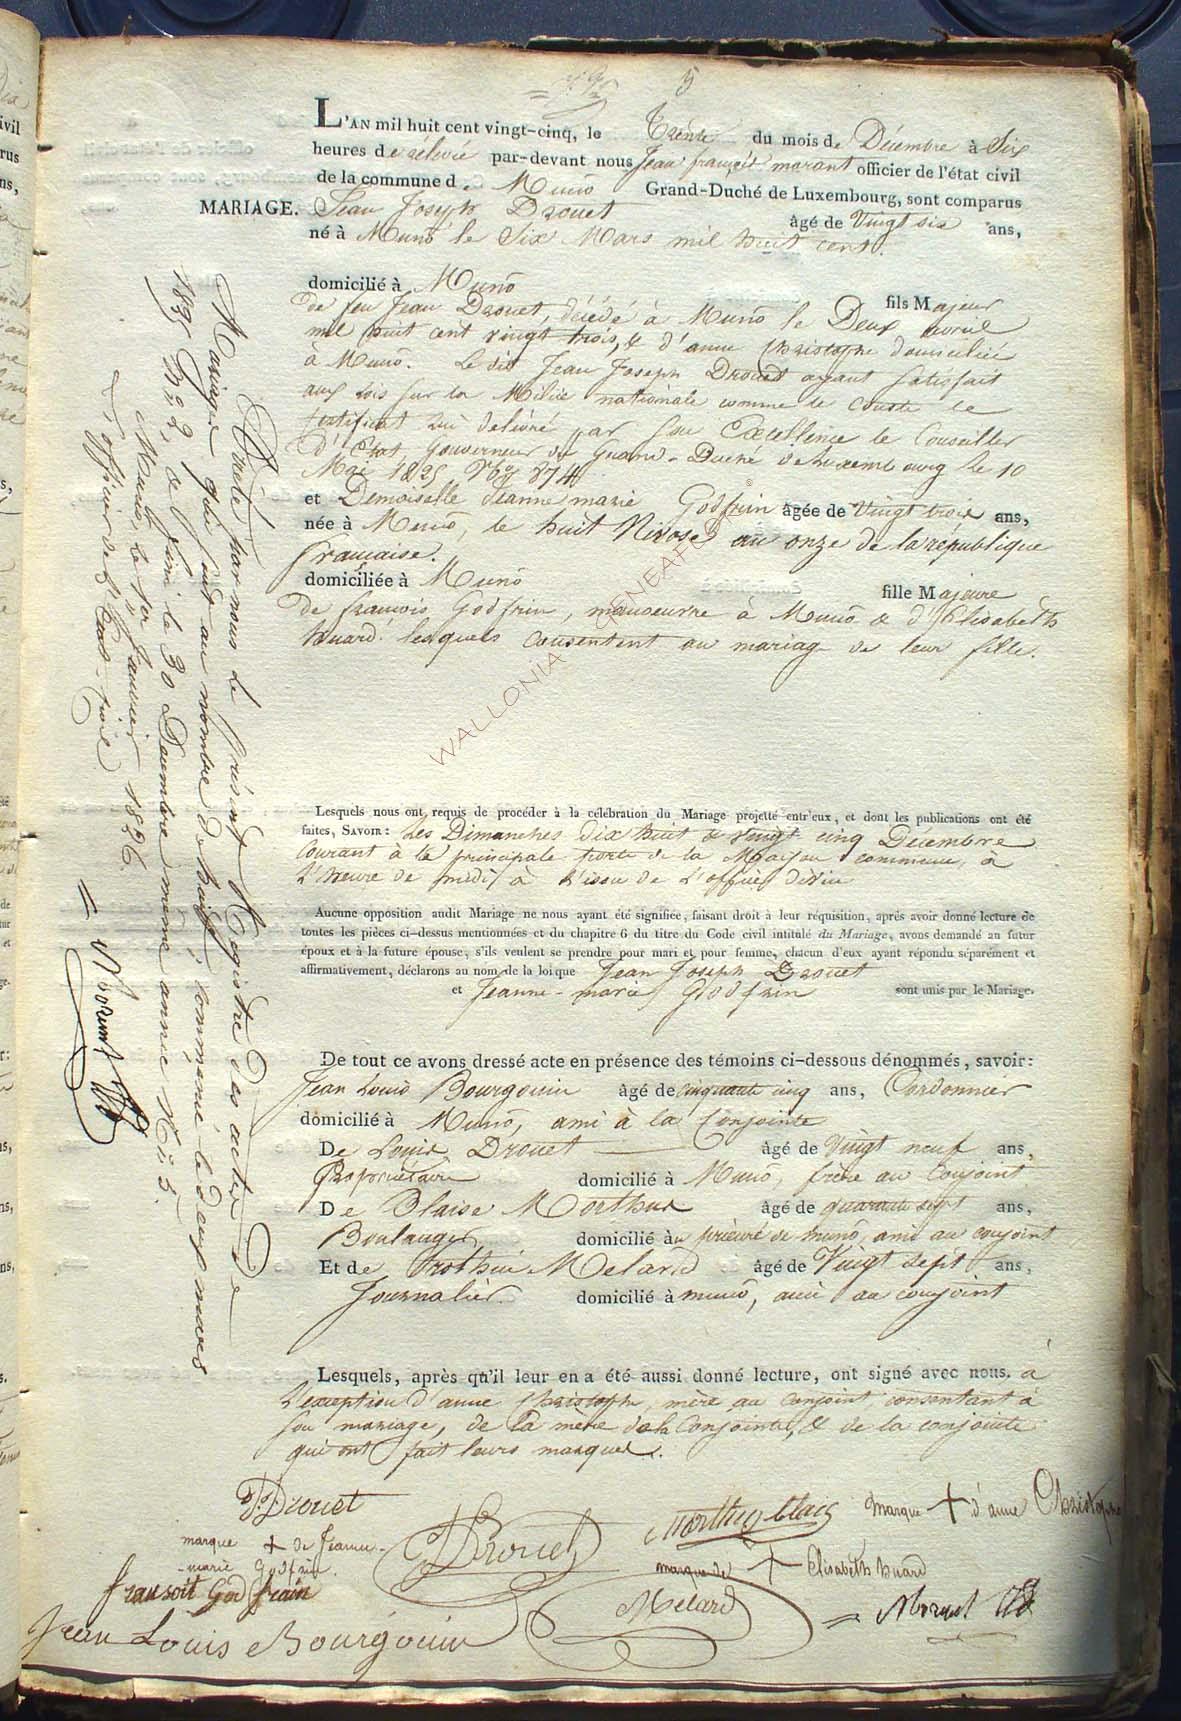 5
L'AN mil huit cent vingt-cinq, le Trente du mois de Décembre à Six
heures de relevée par-devant nous Jean françois morant officier de l'état civil
de la commune de Muno Grand-Duché de Luxembourg, sont comparus
MARIAGE. Jean Joseph Drouet âgé de Vingt six ans,
né à Muno le Six Mars mil huit cent.
domicilié à Muno fils Majeur
de feu Jean Drouet, décédé à Muno le Deux avril
mil huit cent vingt trois, & d'anne christophe domiciliée
à Muno. Le dit Jean Joseph Drouet ayant satisfait
aux Lois sur la Milice nationale comme le conste le
certificat lui delivré par Son Excellence le Conseiller
d'Etat, Gouverneur du Grand-Duché de Luxembourg le 10
Mai 1825 874
et Demoiselle Jeanne marie Godfrin âgée de Vingt trois ans,
née à Muno, le huit Nivose an onze de la république
française.
domiciliée à Muno fille Majeure
de françois Godfrin, manoeuvre à Muno & d'Elisabeth
huard. lesquels consentent au mariage de leur fille.
WALLONIA GENEAFOTO
Lesquels nous ont requis de procéder à la célébration du Mariage projetté entr'eux, et dont les publications ont été
faites, SAVOIR: Les Dimanches dix huit & vingt cinq Décembre
Courant à la principale porte de la Maison commune, à
L'heure de midi à L'issue de L'office divin
Aucune opposition audit Mariage ne nous ayant été signifiée, faisant droit à leur réquisition, aprés avoir donné lecture de
toutes les pièces ci-dessus mentionnées et du chapitre 6 du titre du Code civil intitulé du Mariage, avons demandé au futur
époux et à la future épouse, s'ils veulent se prendre pour mari et pour femme, chacun d'eux ayant répondu séparément et
affirmativement, déclarons au nom de la loi que Jean Joseph Drouet
et Jeanne-marie Godfrin sont unis par le Mariage.
De tout ce avons dressé acte en présence des témoins ci-dessous dénommés, savoir:
Jean Louis Bourgouin âgé de cinquante cinq ans, Cordonnier
domicilié à Muno, ami à la Conjointe
De Louis Drouet âgé de Vingt neuf ans,
Propriétaire domicilié à Muno, frère au Conjoint
De Blaise Morthus âgé de quarante sept ans,
Boulanger domicilié au prieuré de muno, ami au conjoint
Et de Mélard âgé de Vingt sept ans,
Journalier. domicilié à muno, ami au conjoint
Lesquels, après qu'il leur en a été aussi donné lecture, ont signé avec nous. à
L'exception d'anne christophe, mère au conjoint, consentant à
son mariage, de la mère de la Conjointe, & de la conjointe
qui ont fait leurs marques.
Arrêté par nous le présent Registre des actes de
Mariage quï sont au nombre de huit, commencé le deux mars
1825 N.° 2, & fini le 30 Décembre même année N.° 5.
Muno, le 1er Janvier 1826.
L'officier de l'Etat-civil
= Morant
JJ Drouet
Drouet
Morthus blais
marque + d'anne Christophe
marque + de Jeanne-
marie Godfrin.
marque de + Elisabeth huard
fransoit God frain
Mélard
= Morant
Jean Louis Bourgouin